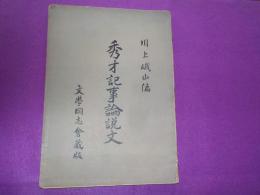 川上峨山編
秀才記事論説文
文學同志會蔵版